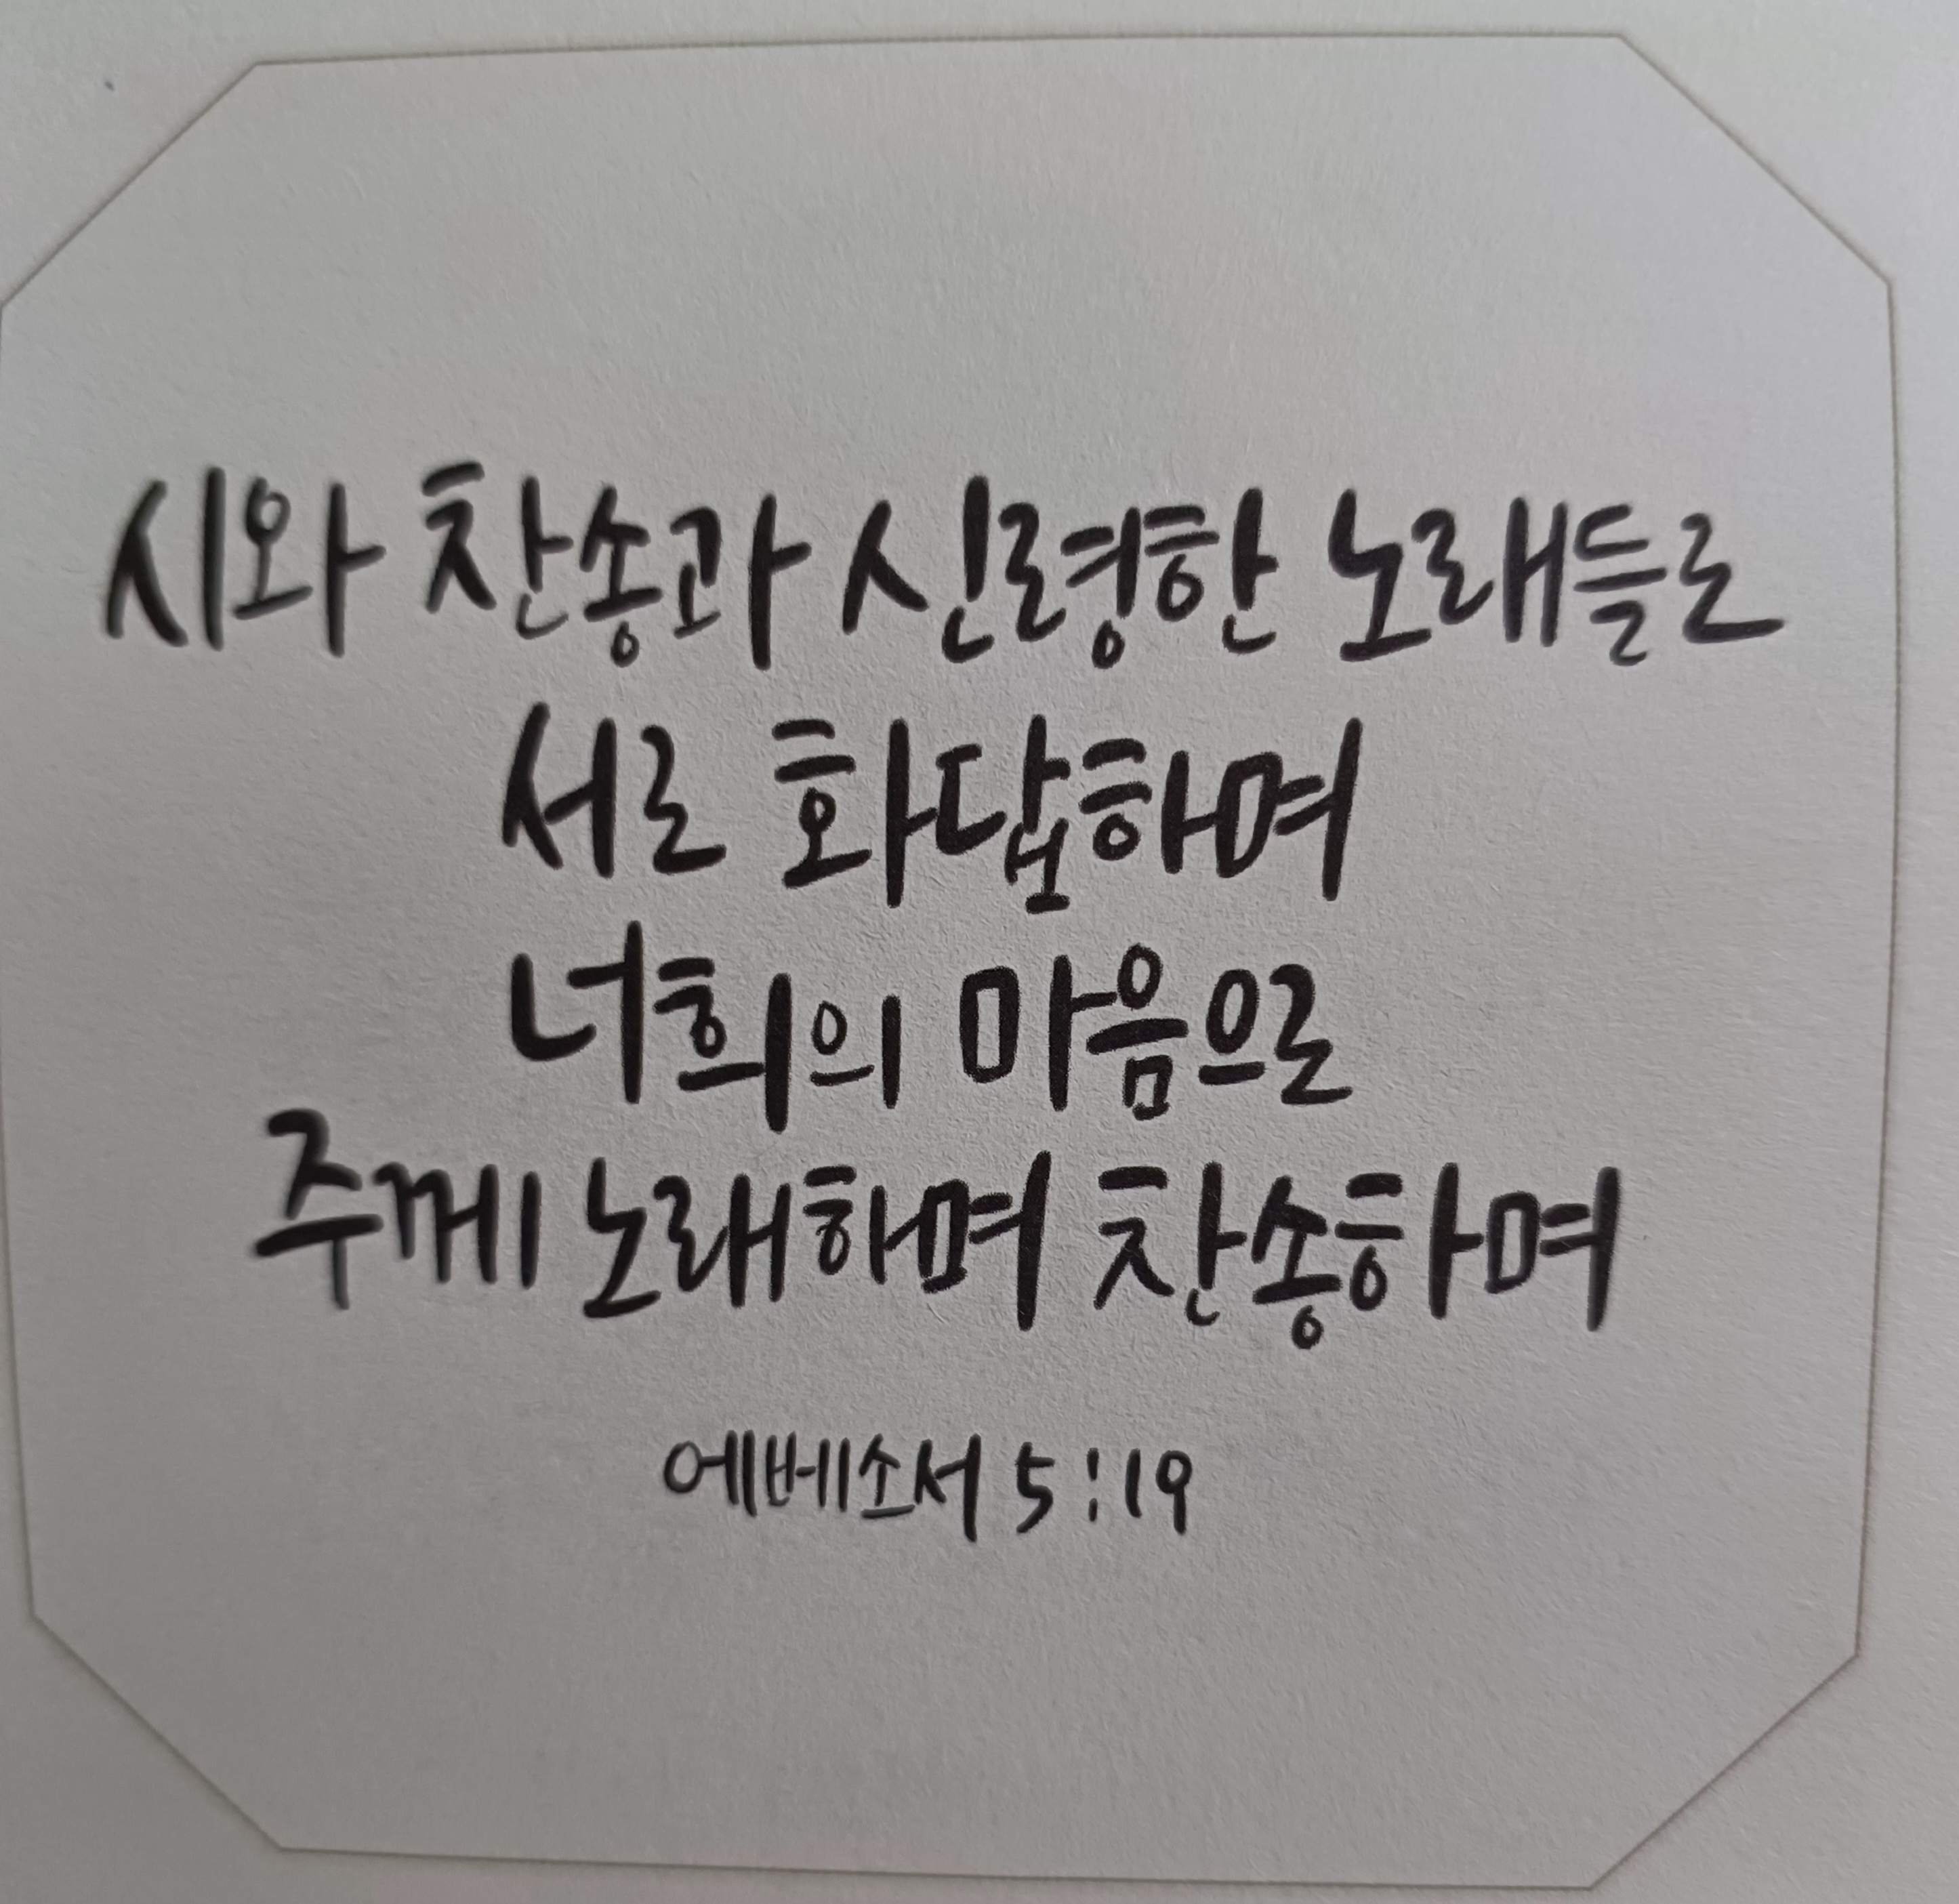 시와 찬송과 신령한 노래들로
서로 화답하며
너희의 마음으로
주께 노래하며 찬송하며
에베소서 5:19